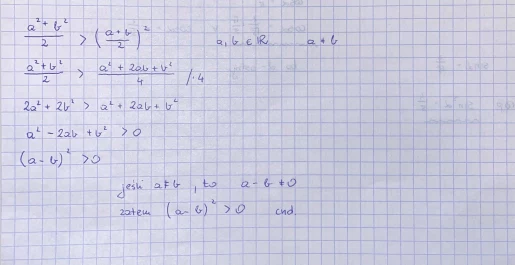 (a²+b²)/2 > ((a+b)/2)² a, b ∈ ℝ a ≠ b
(a²+b²)/2 > (a²+2ab+b²)/4 /·4
2a² + 2b² > a² + 2ab + b²
a² - 2ab + b² > 0
(a-b)² > 0
jeśli a≠b, to a-b ≠ 0
zatem (a-b)² > 0 cnd.